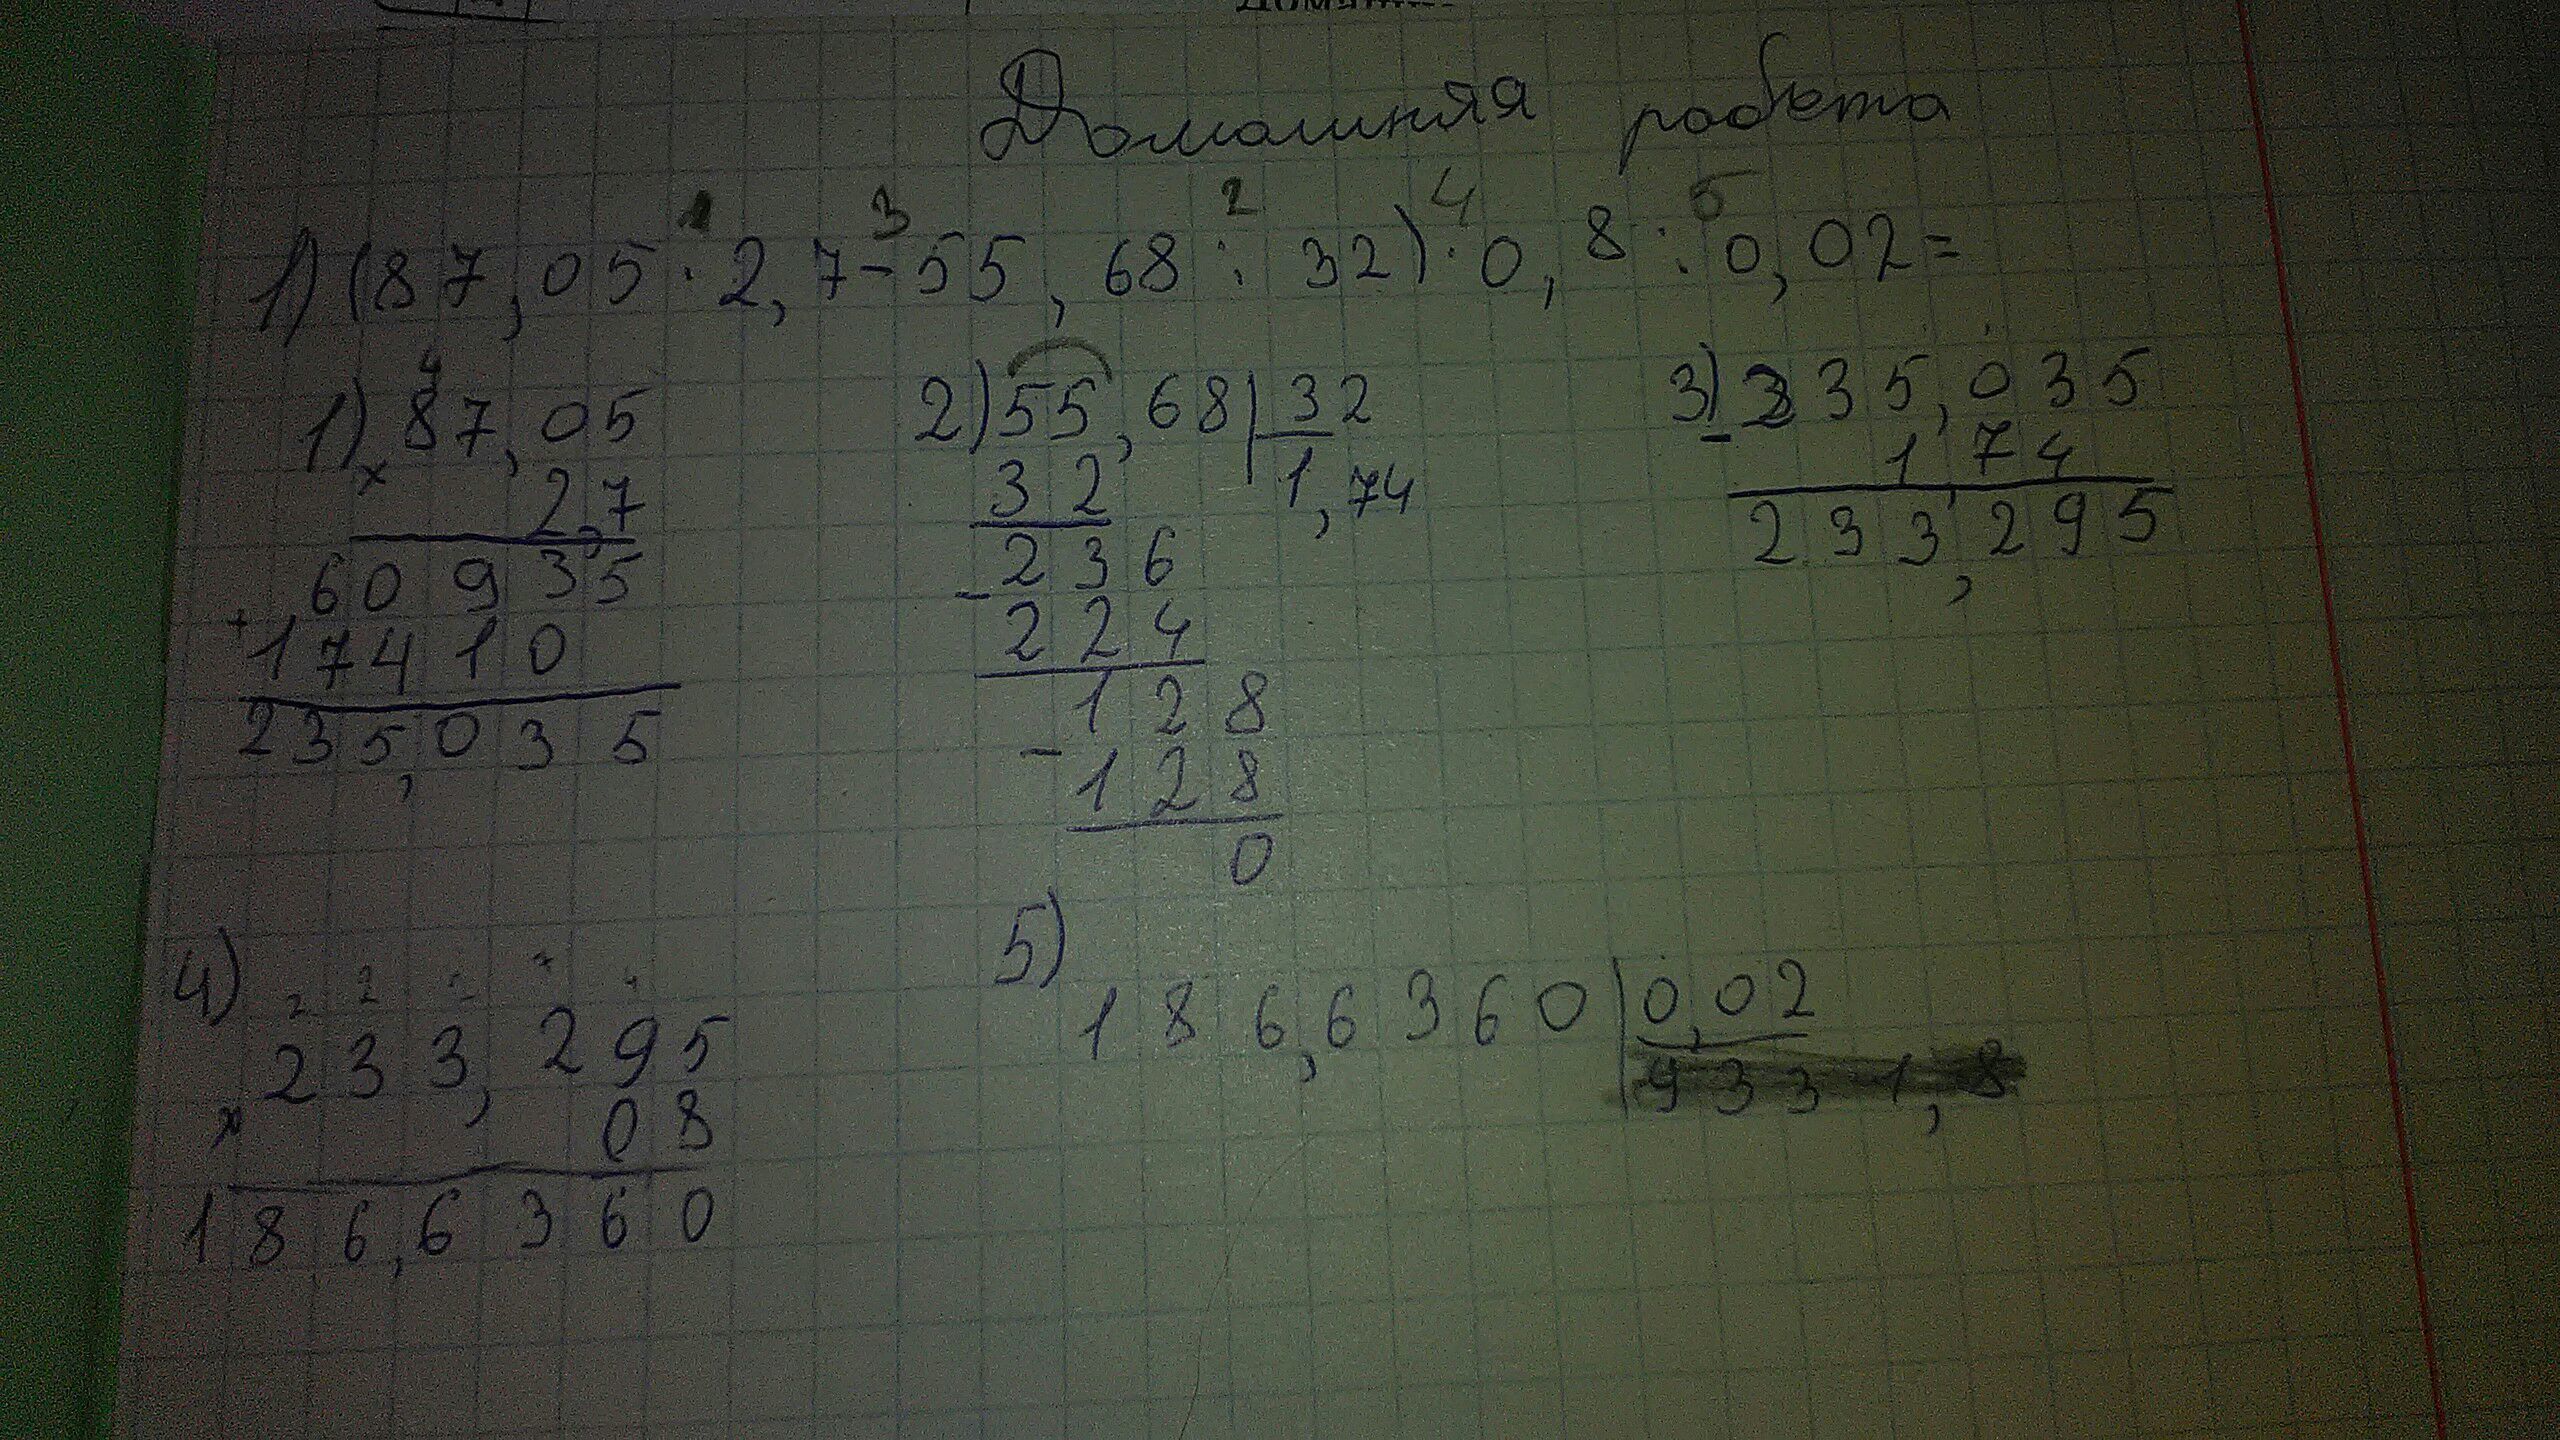 Домашняя работа
1 3 2 4 5
1) (87,05 · 2,7 - 55,68 : 32) · 0,8 : 0,02 =
1) 87,05
× 2,7
60935
+ 17410
235,035
2) 55,68 | 32
32 1,74
236
- 224
128
- 128
0
3) 235,035
- 1 74
233,295
4)
233,295
× 08
186,6360
5)
186,6360 | 0,02
9331,8